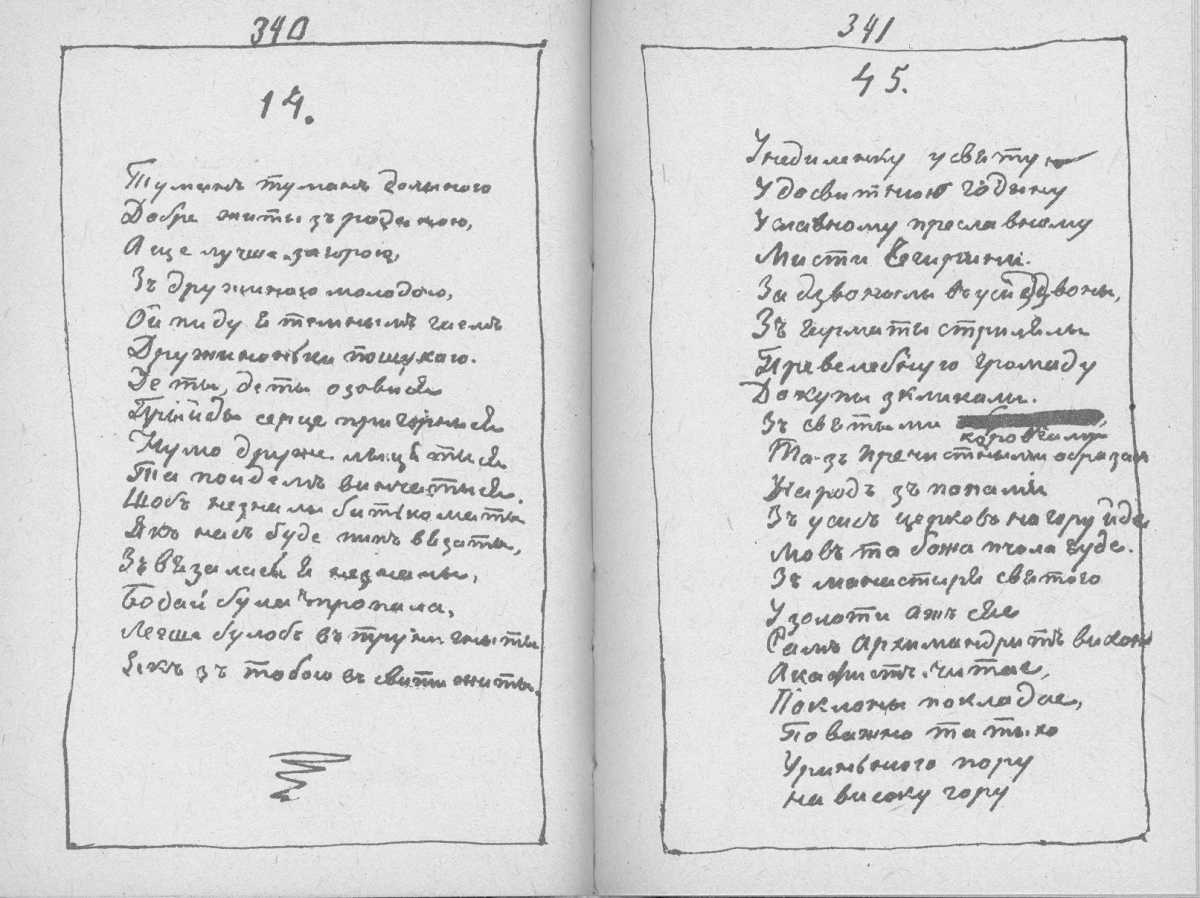 340
14.
Туманъ туманъ долыною
Добре жыты зъ родыною,
А ще лучше за горою,
Зъ дружиною молодою,
Ой пиду я темнымъ гаемъ
Дружиноньки пошукаю.
Де ты, де ты озовися
Прыйды серце пригорнися
Нумо друже лыцятися
Та поидемъ винчатися.
Щобъ незналы батько маты
Якъ насъ буде пипъ вязаты,
Зъвязалась я незнаты,
Бодай була пропала,
Легше булобъ въ труни гныты
Якъ зъ тобою въ свити жыты.
341
45.
Унедиленьку у святую
У досвитнюю годину
Уславному преславному
Мисти Чигирини.
Задзвонылы въ уси дзвоны,
Зъ гарматы стрилялы
Превелебную громаду
Докупы зкликалы.
Зъ святыми
коровгами
Та-зъ пречистыми образами
Народъ зъ попами
Зъ усихъ церковъ на гору йде
Мовъ та божа пчола гуде.
Зъ манастиря святого
У золоти ажъ сяе
Самъ Архимандритъ виходе
Акафистъ читае,
Поклоны покладае,
Поважно та тыхо
У раньнюю пору
на високу гору